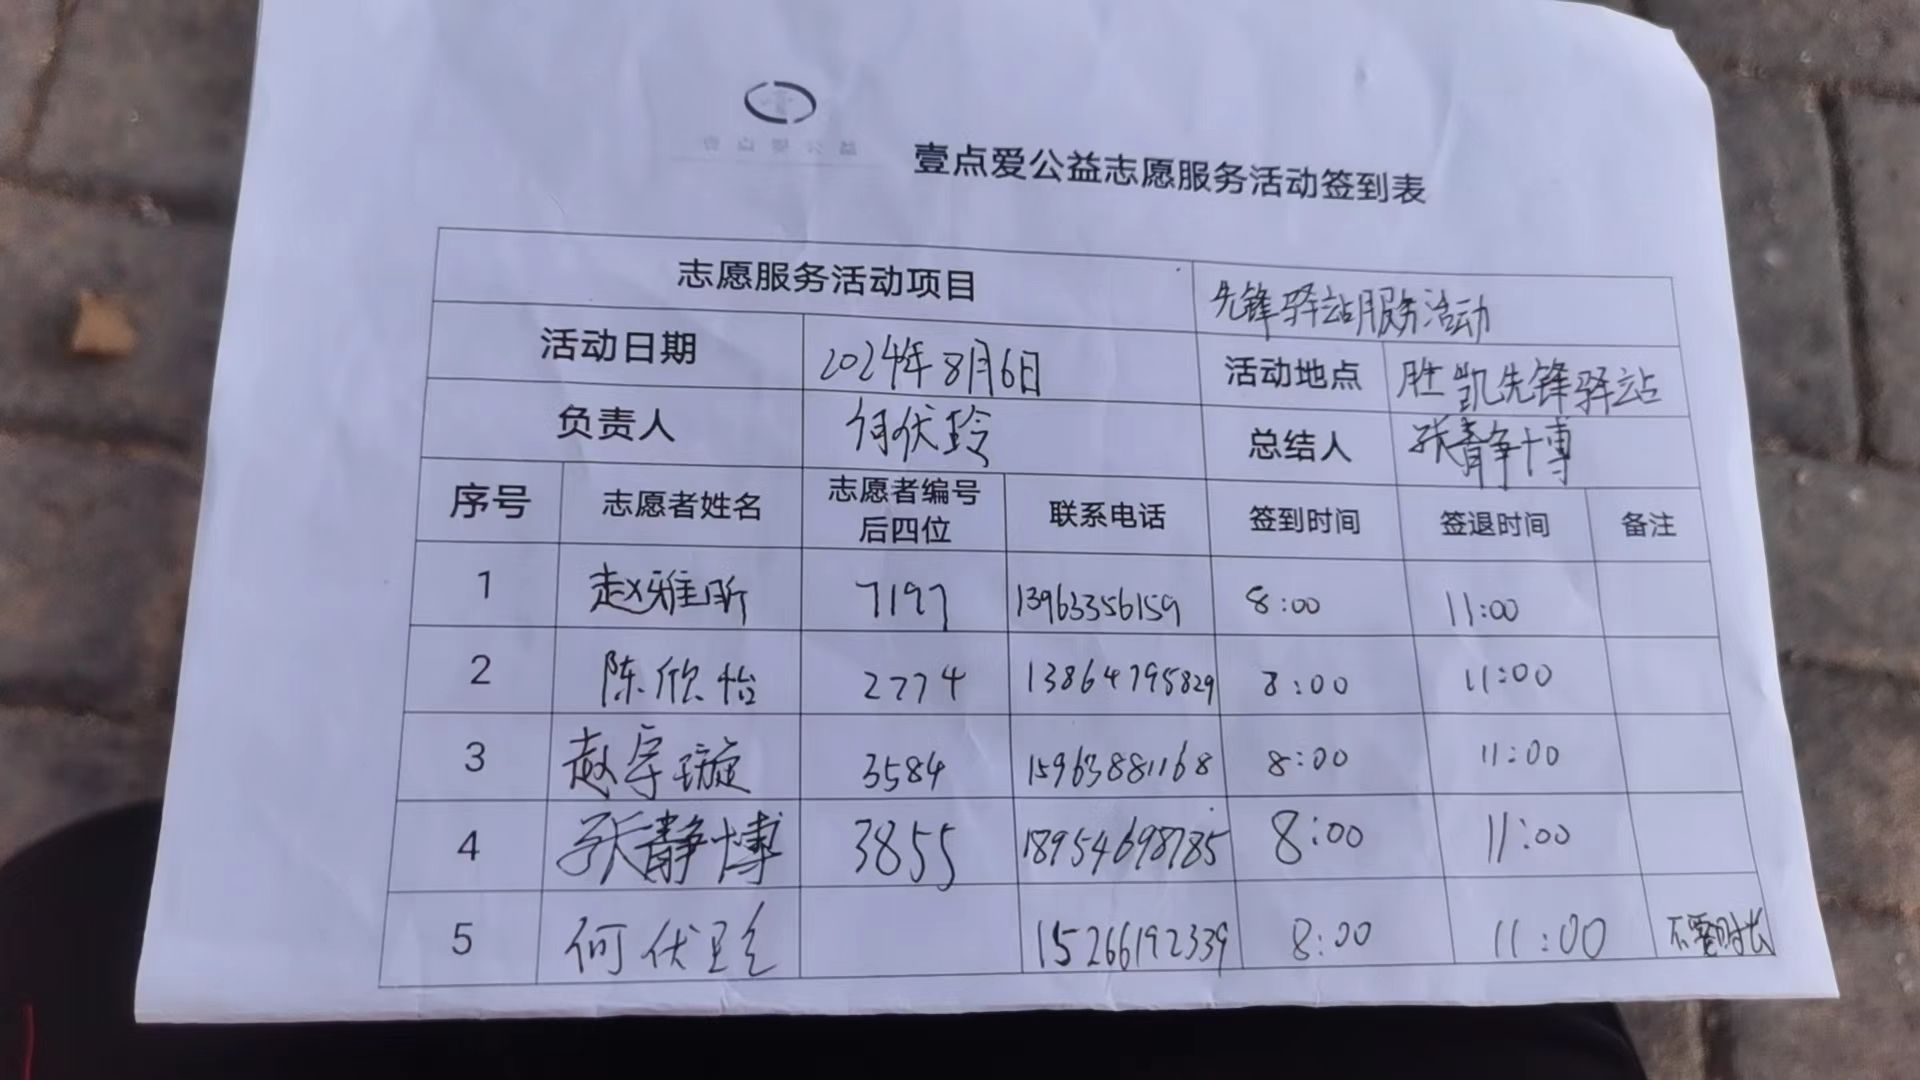 壹点爱公益志愿服务活动签到表
志愿服务活动项目 先锋驿站服务活动
活动日期 2024年8月6日 活动地点 胜凯先锋驿站
负责人 何伏玲 总结人 张静博
序号 志愿者姓名 志愿者编号后四位 联系电话 签到时间 签退时间 备注
1 赵雅昕 7197 13963356159 8:00 11:00
2 陈欣怡 2774 13864795829 8:00 11:00
3 赵宇璇 3584 15963881168 8:00 11:00
4 张静博 3855 18954698785 8:00 11:00
5 何伏玲 15266192339 8:00 11:00 不需时长